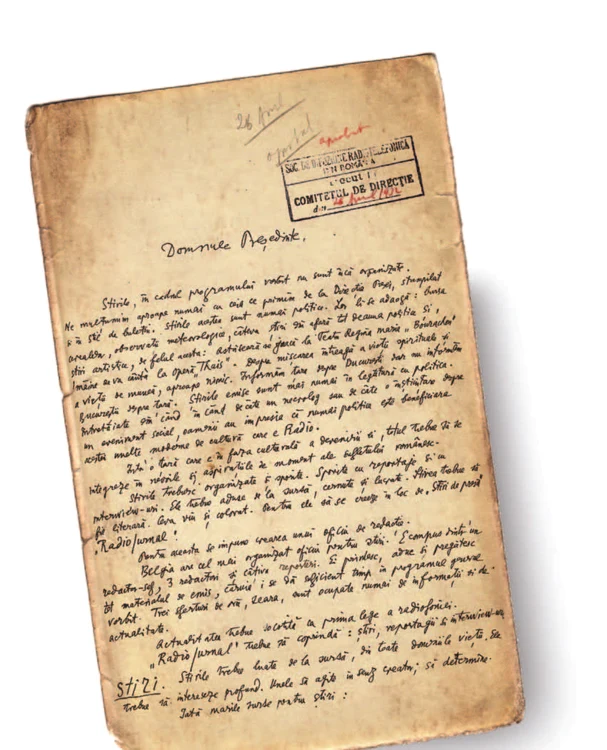 26 April
aprobat
SOC. DE DIFUZIUNE RADIOTELEFONICĂ
DIN ROMÂNIA
COMITETUL DE DIRECȚIE
din 26 April
Domnule Președinte,
Știrile, în cadrul programului vorbit nu sunt încă organizate.
Ne mulțumim aproape numai cu ceia ce primim de la Direcția Presei, stampilat
și în stil de buletin. Știrile acestea sunt numai politice. Lor li se adaogă: bursa
cerealelor, observații meteorologice, câteva știri din afară tot deauna politice și,
știri artistice, de felul acesta: astăseară se joacă la Teatru Regina Maria
mâine se va cânta la operă „Thais". Despre mișcarea întreagă a vieții spirituale și
a vieții de muncă, aproape nimic. Informăm țara despre București dar nu informăm
Bucureștii despre țară. Știrile emise sunt mai numai în legătură cu politica.
Întretăiate din când în când de câte un necrolog sau de câte o înștiințare despre
un eveniment social, oamenii au impresia că numai politica este beneficiara
acestei unelte moderne de cultură care e Radio.
Într'o țară care e în fața culturală a devenirii ei, totul trebue să se
integreze în nevoile și aspirațiile de moment ale sufletului românesc.
Știrile trebuesc organizate și sporite. Sporite cu reportagii și cu
interview-uri. Ele trebue aduse de la sursă, cernute și Știrea trebue să
fie literară. Ceva viu și colorat. Pentru ele să se creeze în loc de „Știri de presă"
„Radio Jurnal".
Pentru aceasta se impune crearea unui oficiu de redacție.
Belgia are cel mai organizat oficiu pentru știri. E compus dintr'un
redactor-șef, 3 redactori și câțiva reporteri. Ei primesc, aduc și pregătesc
tot materialul de emis, căruia i se dă suficient timp în programul
vorbit. Trei sferturi de oră, seara, sunt ocupate numai de informații și de
actualitate.
Actualitatea trebue socotită ca prima lege a radiofoniei.
„Radio Jurnal" trebue să coprindă: știri, reportagii și interview-uri
ȘTIRI. Știrile trebue luate de la sursă, din toate domeniile vieții. Ele
trebue să intereseze profund. Unele să agite în sens creator; și determine.
Iată marile surse pentru știri: